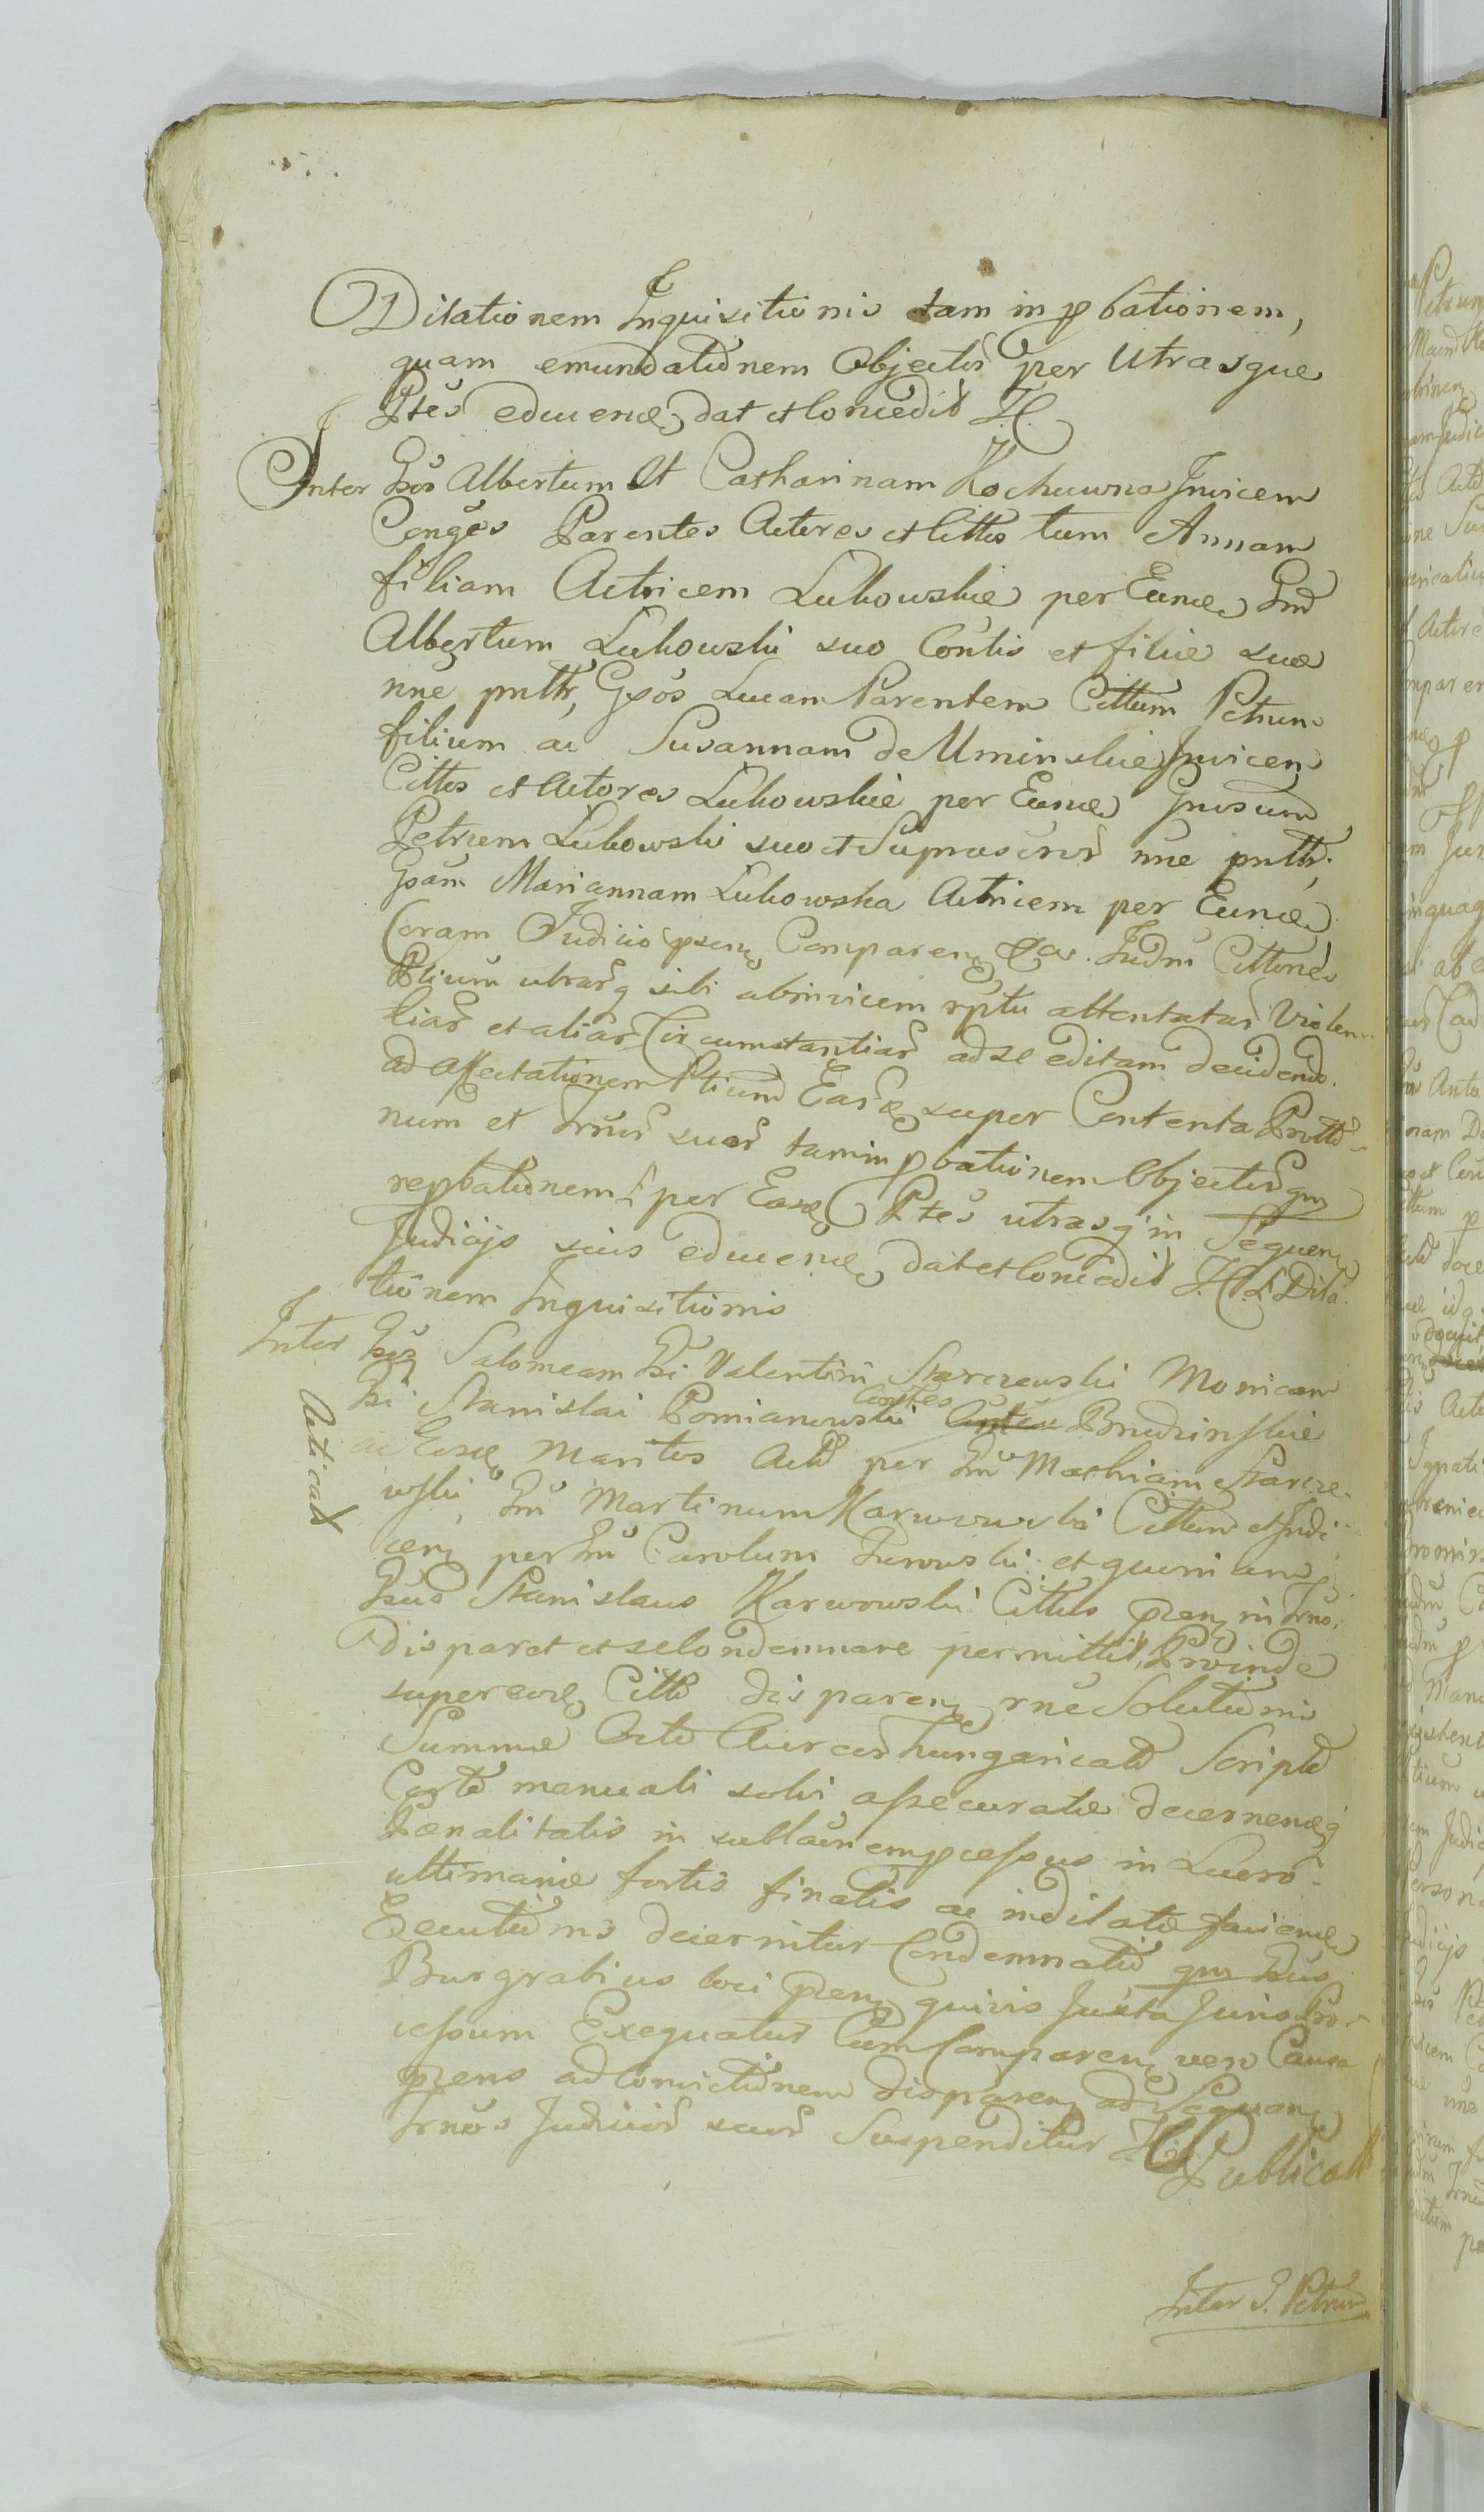 Dilationem Inquisitionis tam in pbationem,
quam emundationem Objector per Utrasque
Ptes educene dat et Concedit H.
Inter Gsos Albertum et Catharinam Kochuwna Invicem
Conges Parentes Actores et Cittos tum Annam
filiam Actricem Lukowskie per Eunde Gnd
Albertum Lukowski suo Contis et filiæ suæ
nne pnttr, Gsos Lucam Parentem Cittum Petrum
filium ac Susannam de Uminskie Invicem
Cittos et Actores Lukowskie per Eunde Gnosum
Petrum Lukowski suo et Suprascror nne pnttr,
Gsam Mariannam Lukowska Actricem per Eunde
Coram Judicio psen Comparen ex Judm Cittones
Ptium utrarq sibi abinvicem rptu attentatar Violen
tiar et aliar Circumstantiar ad se editam decidendo
ad affectationem Ptium Earde super Contenta Protto
num et Trnor suor tam in pbationem Objector qm
repbationem per Easde Ptes utrasq in Sequen
Judicijs suis educene dat et Concedit H. Dila
tionem Inquisitionis
Inter Gsos Salomeam Gsi Valentini Skarzewski Monicam
Gsi Stanislai Pomianowski Contes Brudzinskie
ac Eosde Maritos Acto per Gnu Mathiam Skarze
wski, Gnu Martinum Karwowski Cittum et Judi
cem per Gnu Carolum Turowski et quoniam
Gsus Stanislaus Karwowski Cittus pen in Trno
disparet et se Condemnare permittit, Proinde
super eode Citto disparen rne Solutionis
Summæ Octo Aureor hungaricali Scripto
Certo manuali solvi assecuratæ decernendæq
Pænalitatis in sublaun empcessus in Lucro
ultimariæ fortis finalis ac indilatæ faciendæ
Executionis decernitur Condemnatio qm Gsus
Burgrabius loci pen quivis Juxta Juris Pro
cessum Exequatur Cum Comparen vero Causa
pens ad Convictionem disparen ad Sequen
Trnos Judicior suor Suspenditur H Publicat
Acticat
Inter G. Petrum